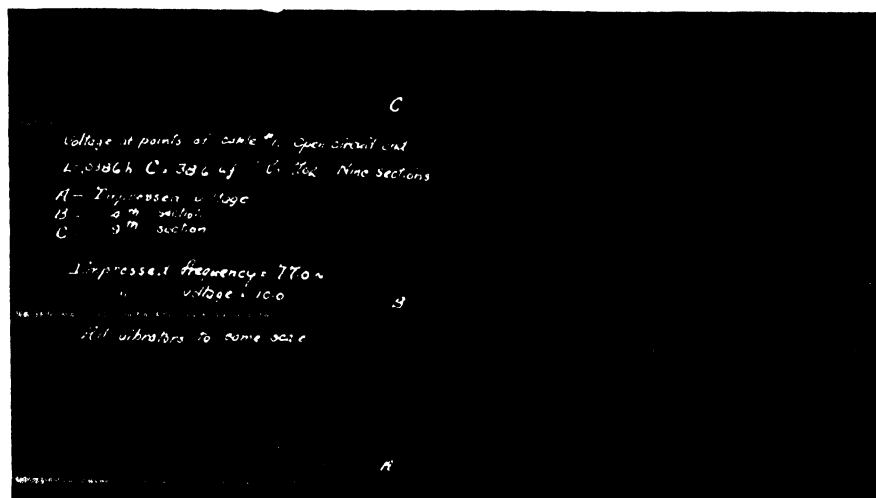 C
Voltage at points of cable #1. Open circuit end
L= .0386h C= .386 uf Nine sections
A - Impressed voltage
B - 4th section
C 9th section
Impressed frequency = 770 ~
" voltage = 10.0
B
All vibrators to same scale
A